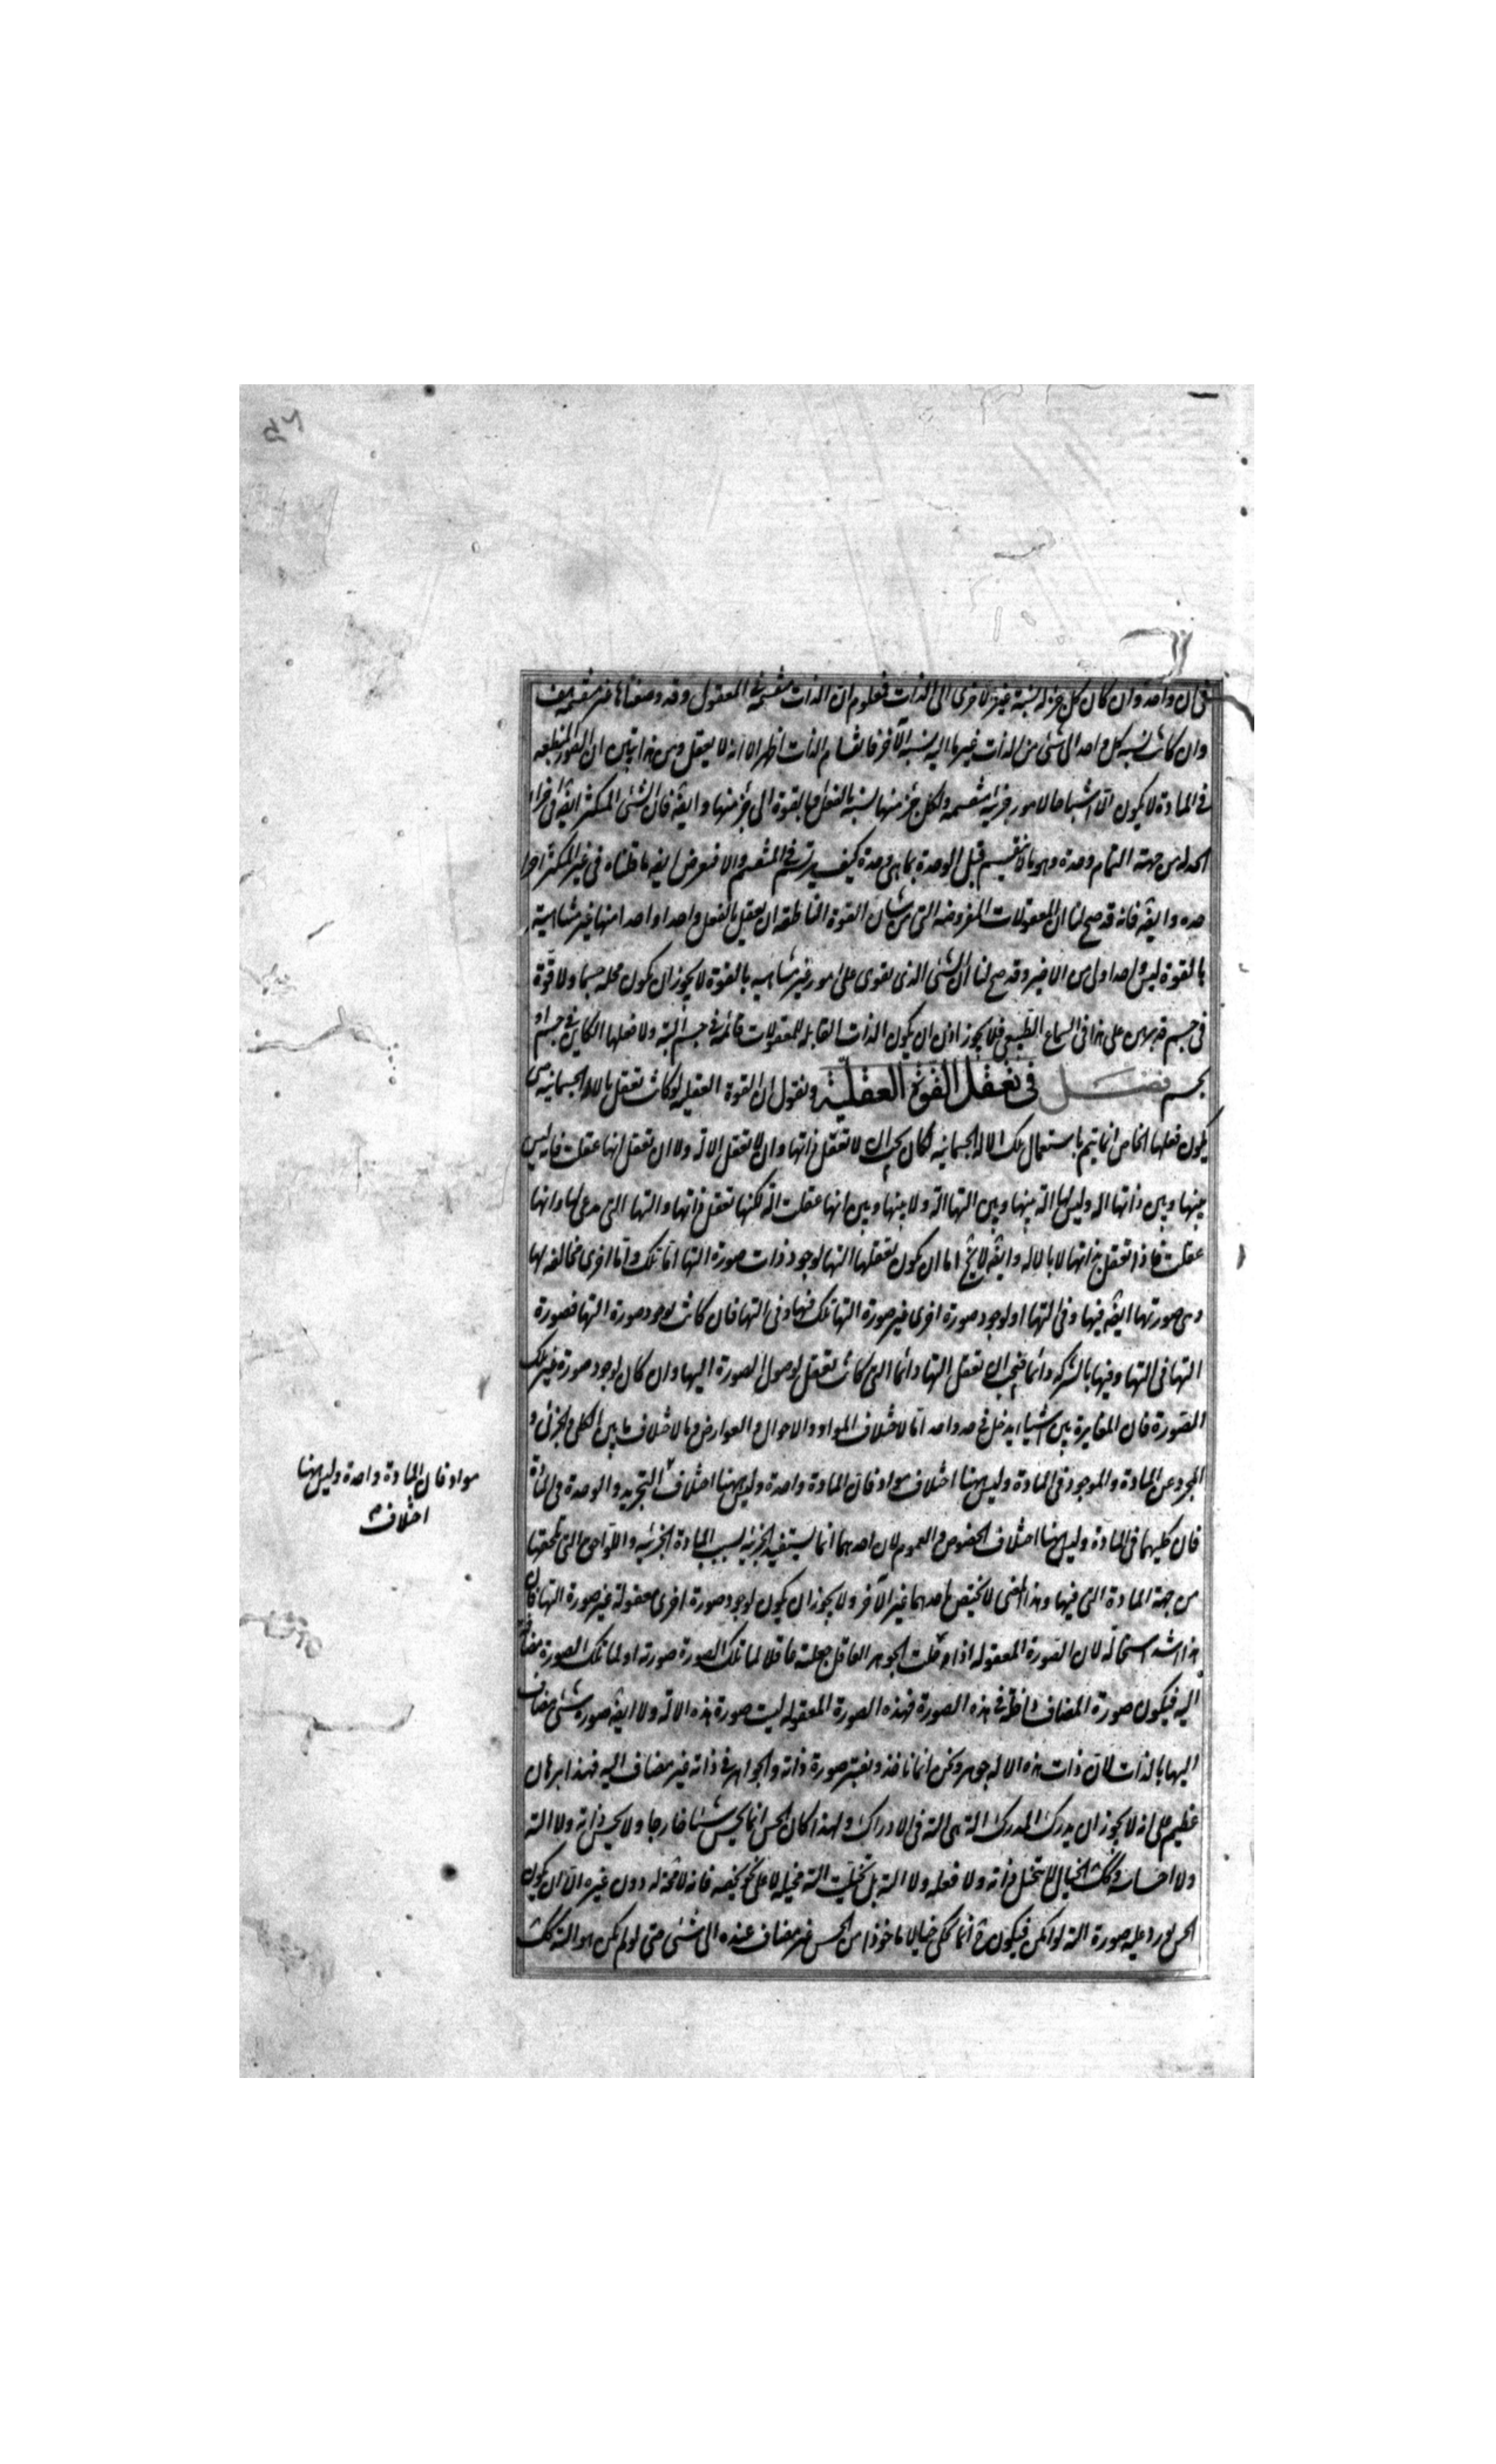 فى ان واحد وان كان كل جزء له نسبة غير الاخرى الى الذات فمعلوم ان الذات منقسمة فى المعقول وقد وضعناها غير منقسمة هف
وان كانت نسبة كل واحد الى شئ من الذات غير ما اليه نسبة الآخر فانقسام الذات اظهر الا انه لا يعقل ومن هذا يتبين ان الصور المنطبعه
فى المادة لا يكون الا اشباحا لامور جزئيه منقسمه ولكل جزء منها نسبة بالفعل او بالقوة الى جزء منها وايضه فان الشئ المتكثر ايضه فى اجزاء
الحد له من جهة التمام وحدة وهو بما لا ينقسم قبل الوحدة بما هى وحدة كيف يرتسم فى المنقسم والا فيعرض ايضه ما قلناه فى غير المتكثر اجزا
حده وايضه فانه قد صح لنا ان المعقولات المفروضه التى من شان القوة الناطقه ان يعقل بالفعل واحدا واحدا منها غير متناهية
بالقوة ليس واحد اولى من الاخير وقد صح لنا ان الشئ الذى يقوى على امور غير متناهيه بالقوة لا يجوز ان يكون محله جسما ولا قوة
فى جسم قد برهن على هذا فى السماع الطبيعى فلا يجوز اذن ان يكون الذات القابله للمعقولات قائمة فى جسم البته ولا فعلها الكاين فى جسم او
بجسم فصل فى تعقل القوة العقلية ونقول ان القوة العقليه لو كانت تعقل بالاله الجسمانيه حتى
يكون فعلها الخاص انما يتم باستعمال تلك الاله الجسمانيه لكان يجب ان لا تعقل ذاتها وان لا تعقل الاله ولا ان تعقل انها عقلت فانه ليس
بينها وبين ذاتها اله وليس لها الة بينها وبين التها الة ولا بينها وبين انها عقلت الة لكنها تعقل ذاتها والتها التى تدعى لها وانها
عقلت فاذا تعقل بذاتها لا بالاله وايضه لا يخ اما ان يكون تعقلها التها لوجود ذات صورة التها اما تلك واما اخرى مخالفه لها
وهى صورتها ايضه فيها وفى التها او لوجود صورة اخرى غير صورة التها تلك فيها وفى التها فان كانت لوجود صورة التها فصورة
التها فى التها وفيها بالشركه دائما فيجب ان تعقل التها دائما التى كانت تعقل لوصول الصورة اليها وان كان لوجود صورة غير تلك
الصورة فان المغايرة بين اشياء يدخل فى حد واحد اما لاختلاف المواد والاحوال والعوارض واما لاختلاف ما بين الكلى والجزئى و
المجرد عن المادة والموجود فى المادة وليس ههنا اختلاف مواد فان المادة واحدة وليس ههنا اختلاف التجريد والوحدة فى المادة
فان كليهما فى المادة وليس ههنا اختلاف الخصوص والعموم لان احدهما انما يستفيد الجزئيه بسبب المادة الجزئيه واللواحق التى تلحقها
من جهة المادة التى فيها وهذا المعنى لا يختص باحدهما غير الآخر ولا يجوز ان يكون لوجود صورة اخرى معقولة غير صورة التها فان
هذا اشد استحالة لان الصورة المعقوله اذا حلت الجوهر العاقل جعلته عاقلا لما تلك الصورة صورته او لما تلك الصورة مضافة
اليه فيكون صورة المضاف داخلة فى هذه الصورة فهذه الصورة المعقوله ليست صورة هذه الالة ولا ايضه صورة شئ مضاف
اليها بالذات لان ذات هذه الاله جوهر ونحن انما ناخذ ونعتبر صورة ذاته والجواهر فى ذاته غير مضاف اليه فهذا برهان
عظيم على انه لا يجوز ان يدرك المدرك الة هى الته فى الادراك ولهذا كان الحس انما يحس شيئا خارجا ولا يحس ذاته ولا الته
ولا احساسه وكذلك الخيال لا يتخيل ذاته ولا فعله ولا الته بل ان تخيلت الته تخيله لا على نحو يخصه فانه لا محة له دون غيره الا ان يكون
الحس يورد عليه صورة الته لو امكن فيكون ح انما يحكى خيالا ماخوذا من الحس غير مضاف عنده الى شئ حتى لو لم يكن هو الته كذلك
مواد فان المادة واحدة وليس ههنا
اختلاف